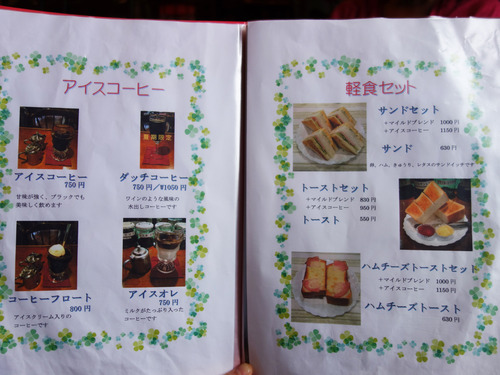 アイスコーヒー
アイスコーヒー
750円
甘味が強く、ブラックでも
美味しく飲めます
ダッチコーヒー
750円／W1050円
ワインのような風味の
水出しコーヒーです
コーヒーフロート
800円
アイスクリーム入りの
コーヒーです
アイスオレ
750円
ミルクがたっぷり入った
コーヒーです
軽食セット
サンドセット
+マイルドブレンド 1000円
+アイスコーヒー 1150円
サンド 630円
卵、ハム、きゅうり、レタスのサンドイッチです
トーストセット
+マイルドブレンド 830円
+アイスコーヒー 950円
トースト 550円
ハムチーズトーストセット
+マイルドブレンド 1000円
+アイスコーヒー 1150円
ハムチーズトースト
630円